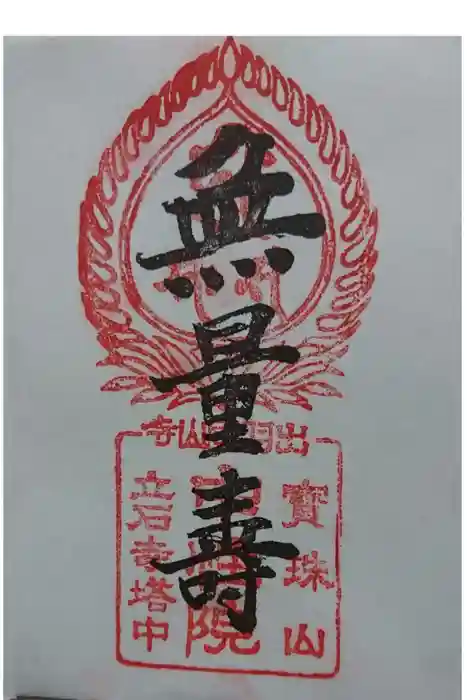 無
量
壽
出羽山寺
寶珠山
院
立石寺塔中